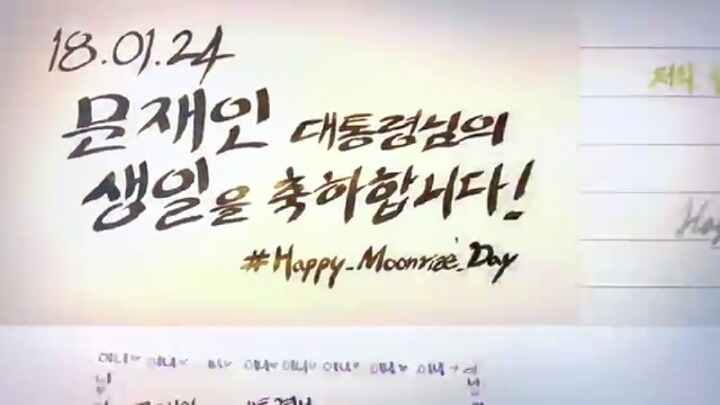 18.01.24
문재인 대통령님의
생일을 축하합니다!
#Happy_Moonrise_Day
저의